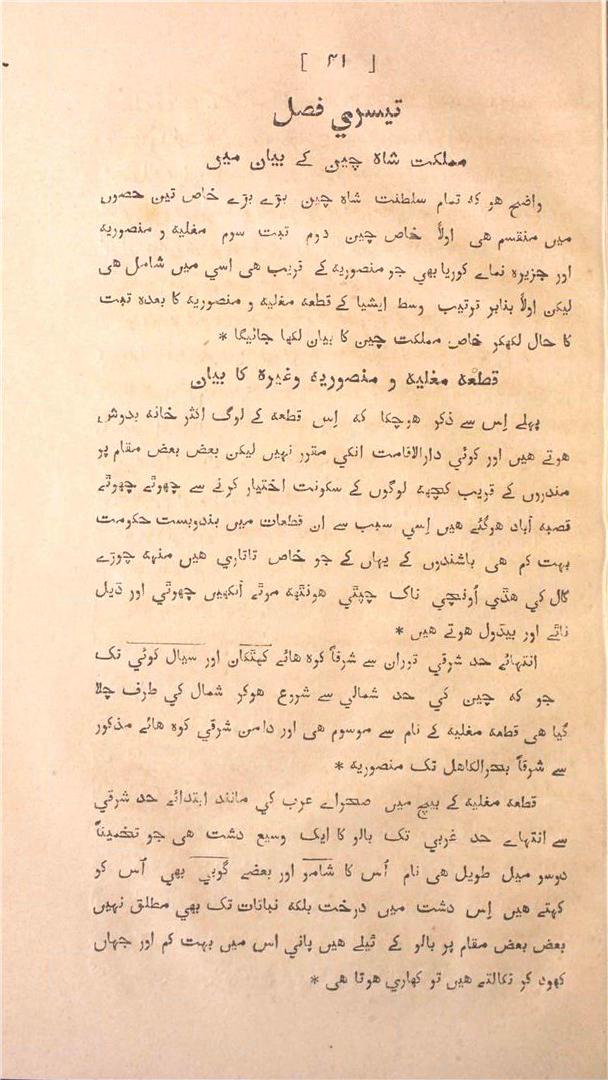 [ ۳۱ ]
تیسري فصل
مملکت شاہ چین کے بیان میں
واضح ھو کہ تمام سلطنت شاہ چین بڑے بڑے خاص تین حصوں
میں منقسم ھی اولاً خاص چین دوم تبت سوم مغلیہ و منصوریہ
اور جزیرہ نماے کوریا بھی جو منصوریہ کے قریب ھی اسي میں شامل ھی
لیکن اولاً بنابر ترتیب وسط ایشیا کے قطعہ مغلیہ و منصوریہ کا بعدہ تبت
کا حال لکھکر خاص مملکت چین کا بیان لکھا جائیگا *
قطعہ مغلیہ و منصوریہ وغیرہ کا بیان
پہلے اِس سے ذکر ھوچکا کہ اِس قطعہ کے لوگ اکثر خانہ بدوش
ھوتے ھیں اور کوئي دارالاقامت انکي مقرر نہیں لیکن بعض بعض مقام پر
مندروں کے قریب کچھہ لوگوں کے سکونت اختیار کرنے سے چھوٹے چھوٹے
قصبہ آباد ھوگئے ھیں اِسي سبب سے ان قطعات میں بندوبست حکومت
بہت کم ھی باشندوں کے یہاں کے جو خاص تاتاري ھیں منھہ چوڑے
گال کي ھڈي اُونچي ناک چپٹي ھونٹھہ موٹے آنکھیں چھوٹي اور ڈیل
ناٹے اور بیڈول ھوتے ھیں *
انتہائے حد شرقي توران سے شرقاً کوہ ھائے کھنگان اور سیال کوئي تک
جو کہ چین کي حد شمالي سے شروع ھوکر شمال کي طرف چلا
گیا ھی قطعہ مغلیہ کے نام سے موسوم ھی اور دامن شرقي کوہ ھائے مذکور
سے شرقاً بحرالکاھل تک منصوریہ *
قطعہ مغلیہ کے بیچ میں صحراے عرب کي مانند ابتدائے حد شرقي
سے انتہاے حد غربي تک بالو کا ایک وسیع دشت ھی جو تخمیناً
دوسو میل طویل ھی نام اُس کا شامو اور بعضے گوبي بھي اُس کو
کہتے ھیں اِس دشت میں درخت بلکہ نباتات تک بھي مطلق نہیں
بعض بعض مقام پر بالو کے ٹیلے ھیں پاني اس میں بہت کم اور جہاں
کھود کر نکالتے ھیں تو کھاري ھوتا ھی *